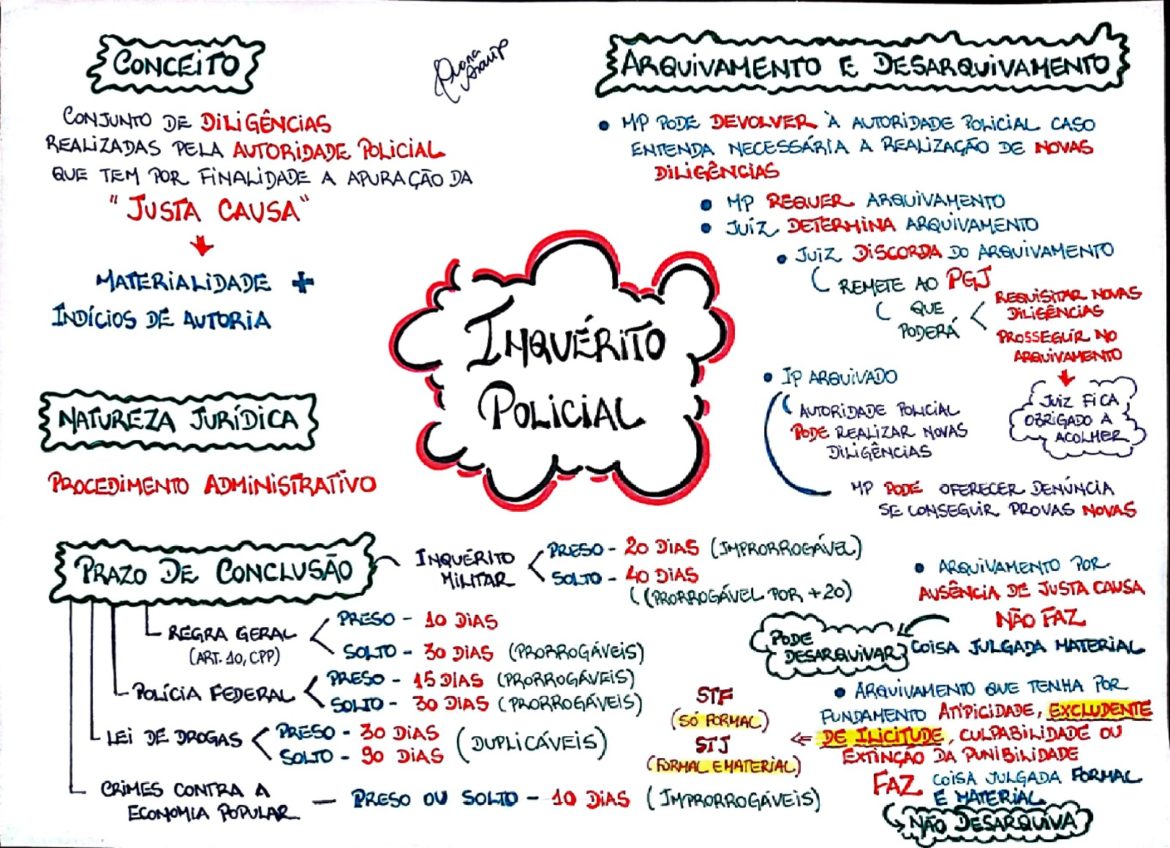 CONCEITO
CONJUNTO DE DILIGÊNCIAS
REALIZADAS PELA AUTORIDADE POLICIAL
QUE TEM POR FINALIDADE A APURAÇÃO DA
"JUSTA CAUSA"
MATERIALIDADE +
INDÍCIOS DE AUTORIA
NATUREZA JURÍDICA
PROCEDIMENTO ADMINISTRATIVO
INQUÉRITO
POLICIAL
ARQUIVAMENTO E DESARQUIVAMENTO
• MP PODE DEVOLVER À AUTORIDADE POLICIAL CASO
ENTENDA NECESSÁRIA A REALIZAÇÃO DE NOVAS
DILIGÊNCIAS
• MP REQUER ARQUIVAMENTO
• JUIZ DETERMINA ARQUIVAMENTO
• JUIZ DISCORDA DO ARQUIVAMENTO
REMETE AO PGJ
QUE
PODERÁ
REQUISITAR NOVAS
DILIGÊNCIAS
PROSSEGUIR NO
ARQUIVAMENTO
JUIZ FICA
OBRIGADO A
ACOLHER
• IP ARQUIVADO
AUTORIDADE POLICIAL
PODE REALIZAR NOVAS
DILIGÊNCIAS
MP PODE OFERECER DENÚNCIA
SE CONSEGUIR PROVAS NOVAS
• ARQUIVAMENTO POR
AUSÊNCIA DE JUSTA CAUSA
NÃO FAZ
COISA JULGADA MATERIAL
PODE
DESARQUIVAR
• ARQUIVAMENTO QUE TENHA POR
FUNDAMENTO ATIPICIDADE, EXCLUDENTE
DE ILICITUDE, CULPABILIDADE OU
EXTINÇÃO DA PUNIBILIDADE
FAZ COISA JULGADA FORMAL
E MATERIAL
NÃO DESARQUIVA
STF
(SÓ FORMAL)
STJ
(FORMAL E MATERIAL)
PRAZO DE CONCLUSÃO
INQUÉRITO
MILITAR
PRESO - 20 DIAS (IMPRORROGÁVEL)
SOLTO - 40 DIAS
(PRORROGÁVEL POR +20)
REGRA GERAL
(ART. 10, CPP)
PRESO - 10 DIAS
SOLTO - 30 DIAS (PRORROGÁVEIS)
POLÍCIA FEDERAL
PRESO - 15 DIAS (PRORROGÁVEIS)
SOLTO - 30 DIAS (PRORROGÁVEIS)
LEI DE DROGAS
PRESO - 30 DIAS
SOLTO - 90 DIAS
(DUPLICÁVEIS)
CRIMES CONTRA A
ECONOMIA POPULAR
PRESO OU SOLTO - 10 DIAS (IMPRORROGÁVEIS)